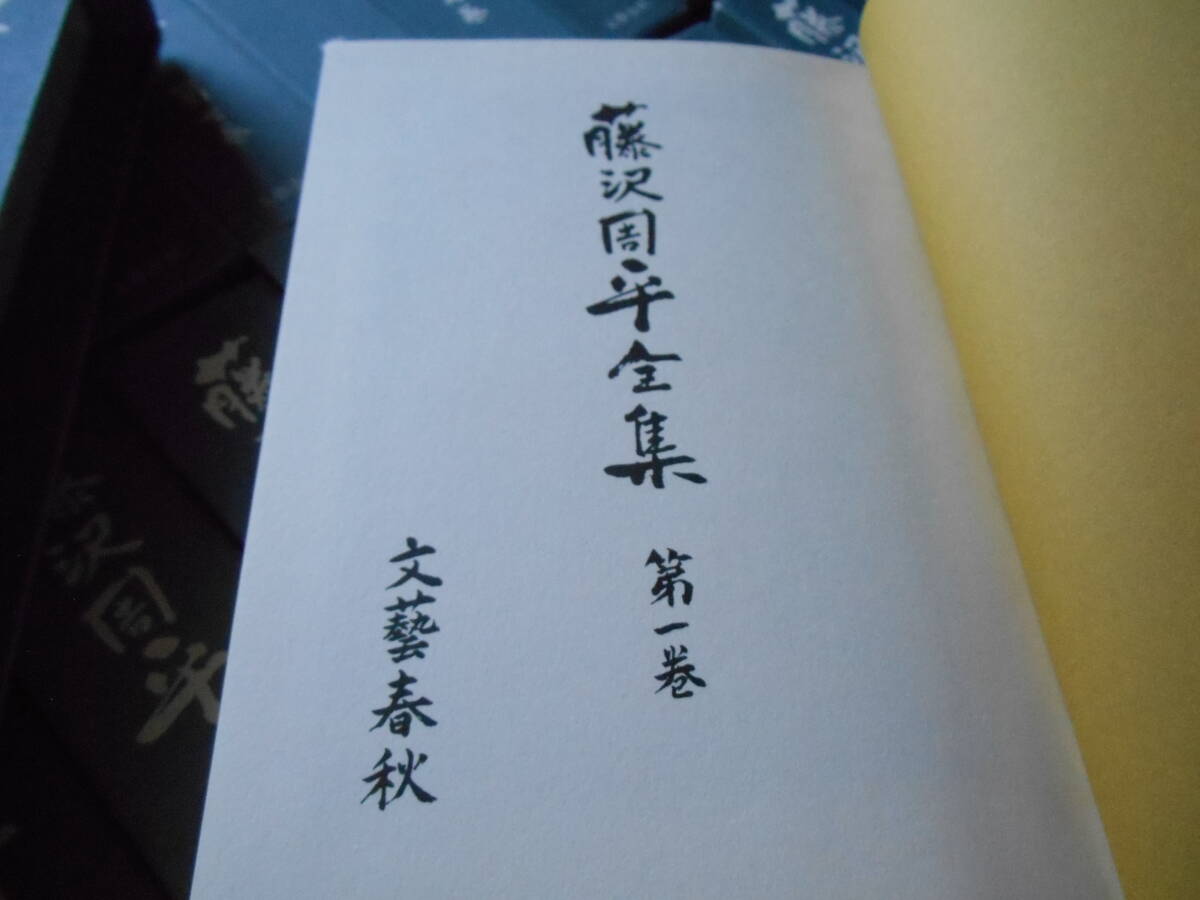 藤沢周平全集 第一巻
文藝春秋
藤
沢周平
藤沢